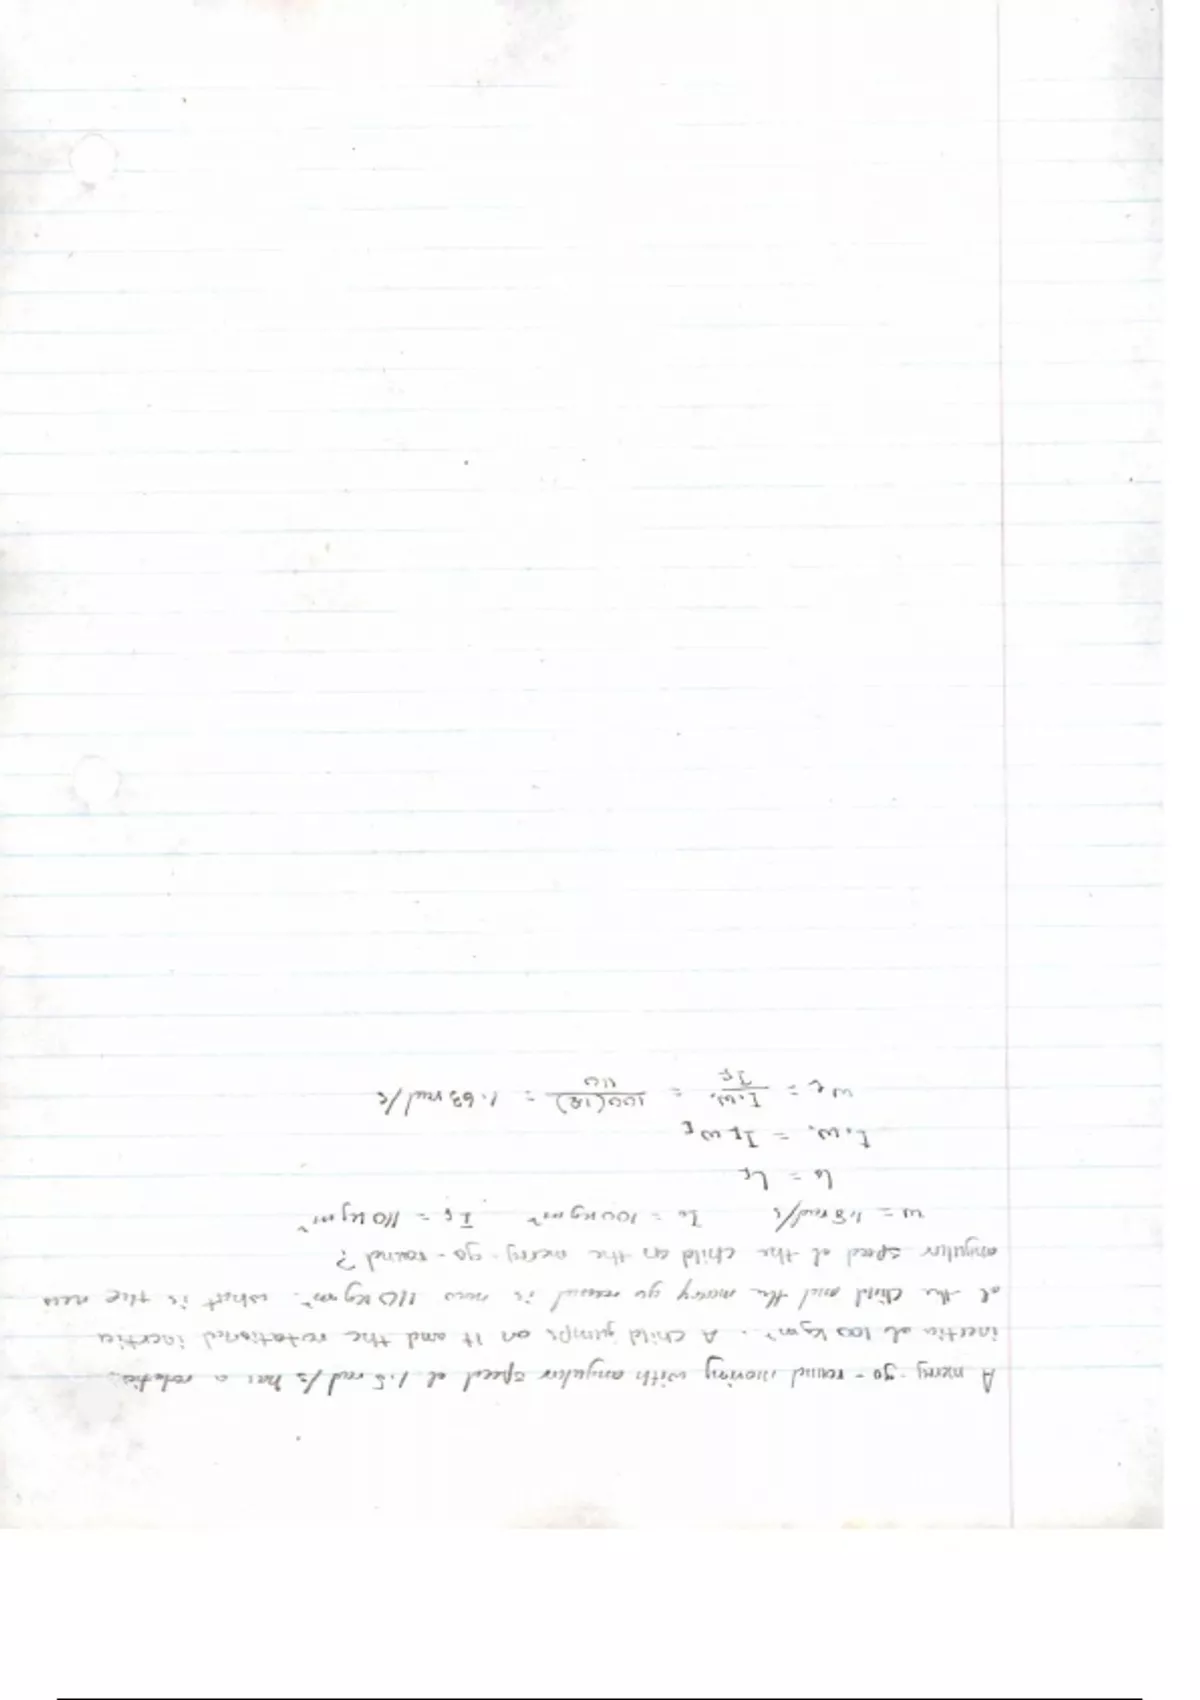 A merry-go-round moving with angular speed of 1.8 rad/s has a rotation
inertia of 100 kgm². A child jumps on it and the rotational inertia
of the child and the merry go round is now 110 kgm². what is the new
angular speed of the child on the merry-go-round?
ω = 1.8 rad/s I₀ = 100 kgm² I_f = 110 kgm²
L₀ = L_f
I₀ω₀ = I_f ω_f
ω_f = I₀ω₀ / I_f = 100(1.8) / 110 = 1.63 rad/s